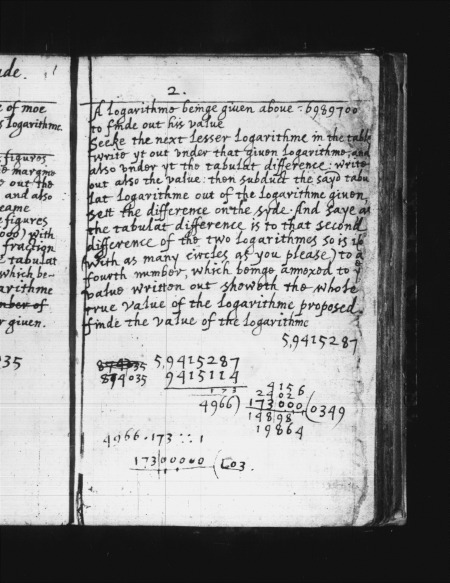 ade.
e of moe
s Logarithme.
figures
e margine
o out the
and also
came
e figures
000) with
fraction
e tabulat
which be-
arithme
nber of
r given.
035
2.
A Logarithme beinge given above . 6989700
to finde out his value
Seeke the next lesser Logarithme in the table
write yt out vnder that given Logarithme, and
also vnder yt the tabulat difference: write
out also the value: then subduct the sayd tabu
lat Logarithme out of the Logarithme given,
sett the difference on the syde. And saye as
the tabulat difference is to that second
difference of the two Logarithmes so is 10
(with as many circles as you please) to a
fourth number, which beinge annexed to y
value written out showeth the whole
true value of the Logarithme proposed.
finde the value of the Logarithme
5,9415287
874035 5,9415287
874035 9415114
173
4156
2402 6
4966) 173000 (0349
14898
19864
4966 . 173 :: 1
17300000 (